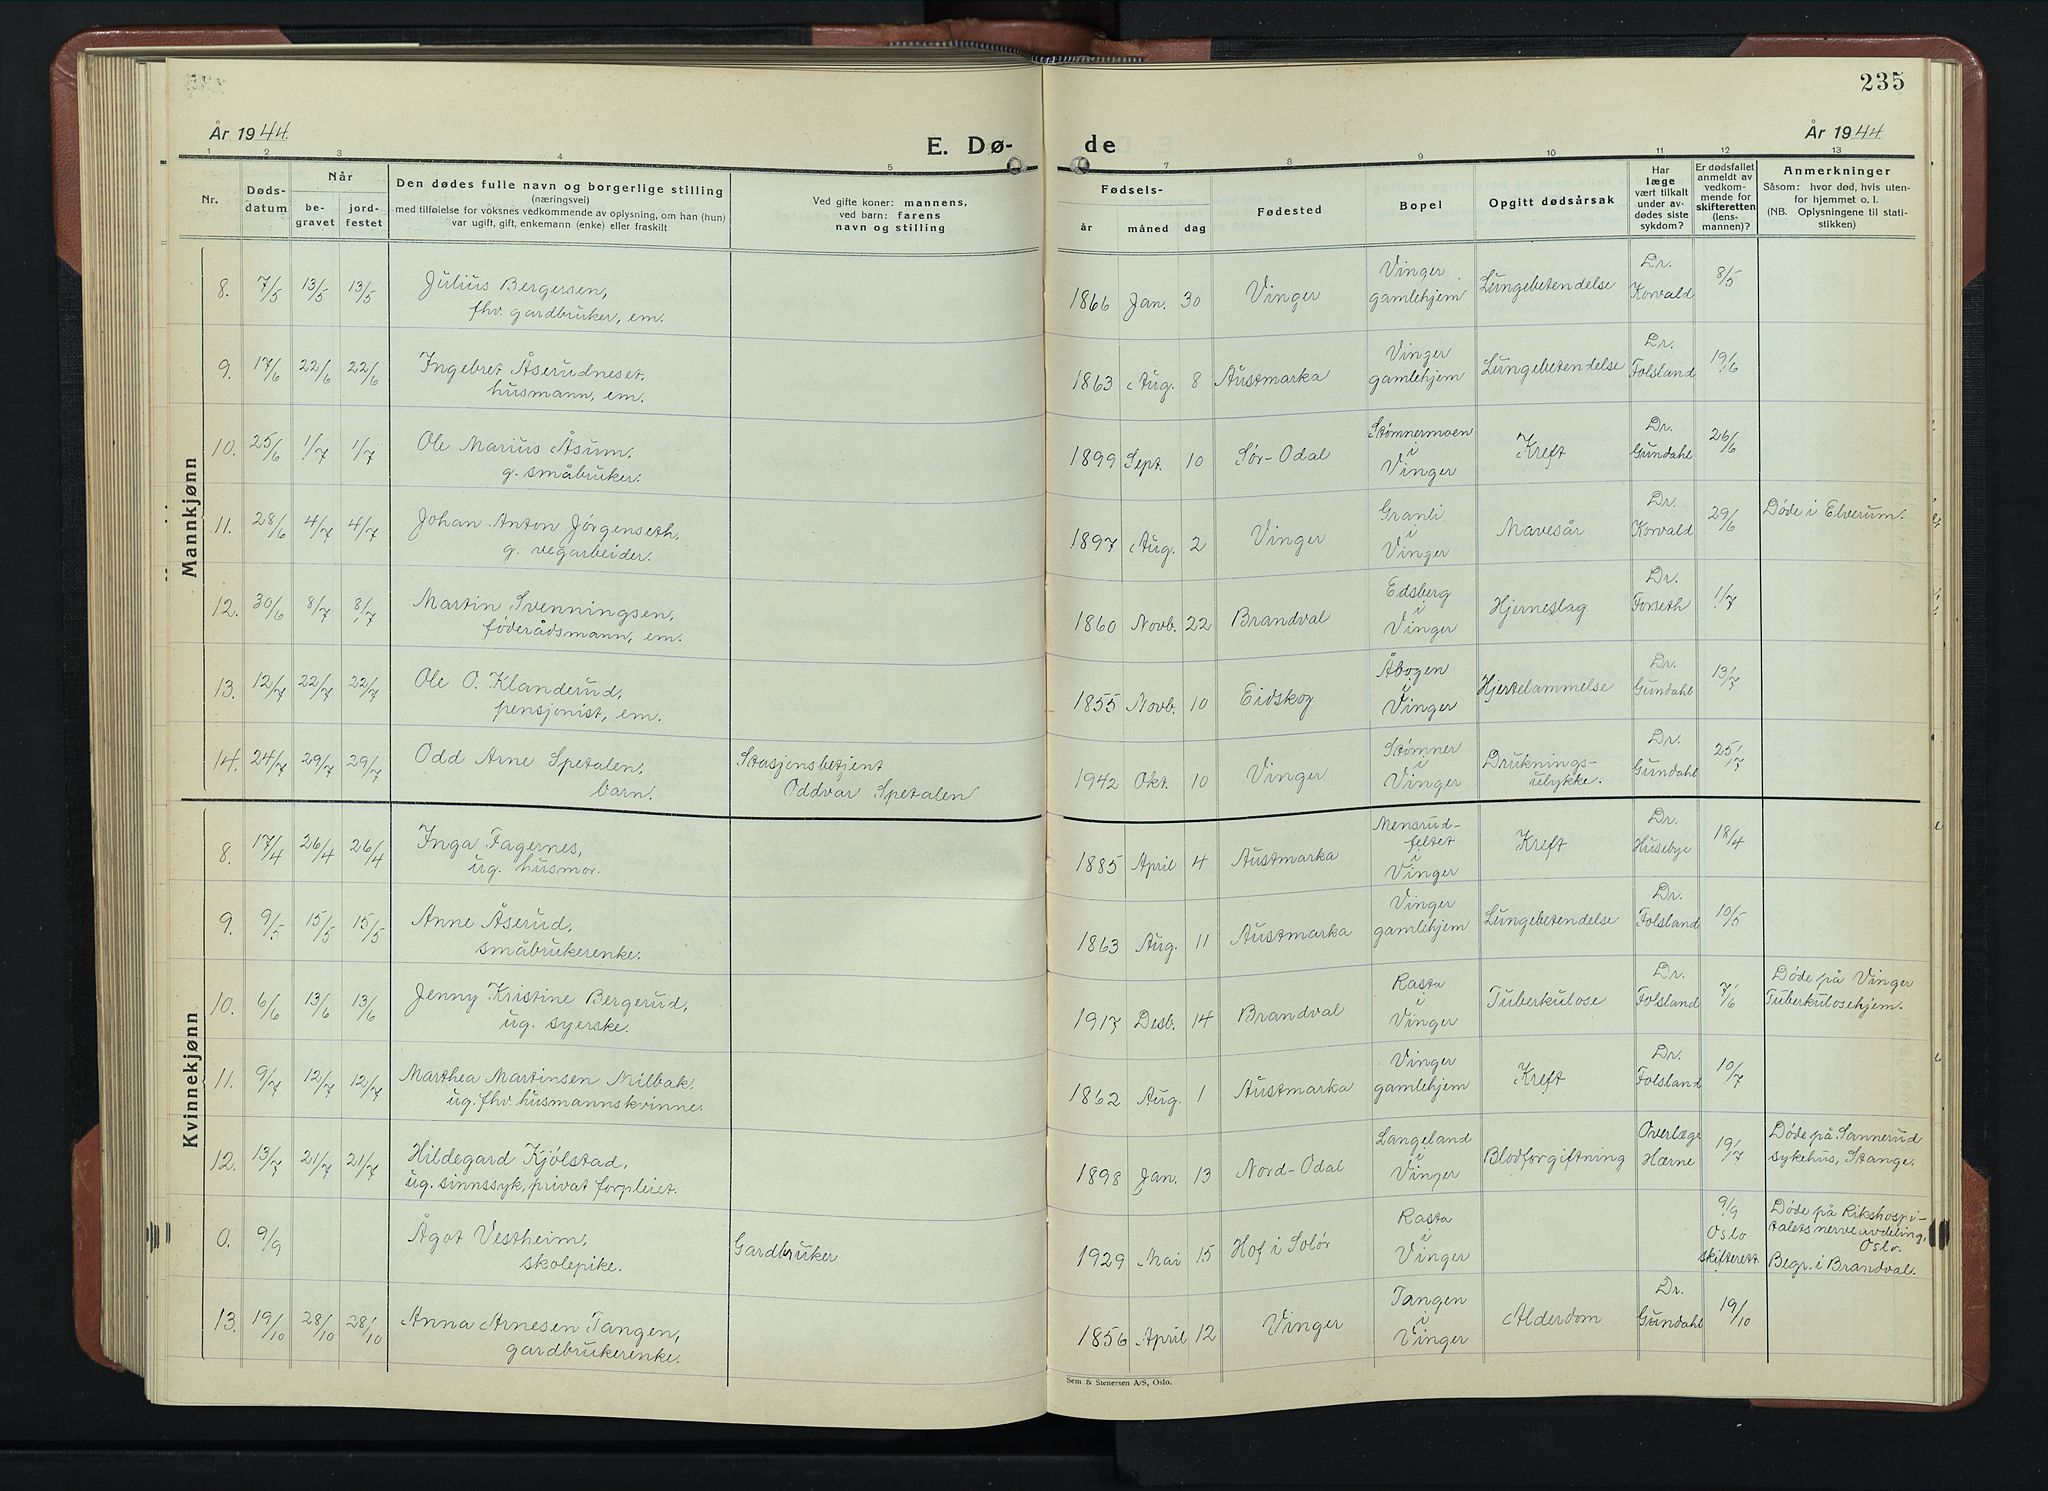 235
År 1944
E. Dø-
de
År 1944
1 2 3 4 5 7 8 9 10 11 12 13
Nr.
Døds-
datum
Når
be-
gravet
jord-
festet
Den dødes fulle navn og borgerlige stilling
(næringsvei)
med tilføielse for voksnes vedkommende av oplysning, om han (hun)
var ugift, gift, enkemann (enke) eller fraskilt
Ved gifte koner: mannens,
ved barn: farens
navn og stilling
Fødsels-
år måned dag
Fødested
Bopel
Opgitt dødsårsak
Har
læge
vært tilkalt
under av-
dødes siste
sykdom?
Er dødsfallet
anmeldt av
vedkom-
mende for
skifteretten
(lens-
mannen)?
Anmerkninger
Såsom: hvor død, hvis uten-
for hjemmet o. l.
(NB. Oplysningene til stati-
stikken)
Mannkjønn
8. 7/5 13/5 13/5 Julius Bergersen,
fhv. gardbruker, em.
1866 Jan. 30 Vinger Vinger
gamlehjem Lungebetendelse Dr.
Korvald 8/5
9. 17/6 22/6 22/6 Ingebret Åserudneset.
husmann, em.
1863 Aug. 8 Austmarka Vinger
gamlehjem Lungebetendelse Dr.
Folsland 19/6
10. 25/6 1/7 1/7 Ole Marius Åsum.
g. småbruker.
1899 Sept. 10 Sør-Odal Stømnermoen
i
Vinger Kreft Dr.
Gundahl 26/6
11. 28/6 4/7 4/7 Johan Anton Jørgenseth.
g. vegarbeider.
1897 Aug. 2 Vinger Granli
i
Vinger Mavesår Dr.
Korvald 29/6 Døde i Elverum.
12. 30/6 8/7 8/7 Martin Svenningsen,
føderådsmann, em.
1860 Novb. 22 Brandval Edsberg
i
Vinger Hjerneslag Dr.
Forseth 1/7
13. 12/7 22/7 22/7 Ole O. Klanderud,
pensjonist, em.
1855 Novb. 10 Eidskog Åbogen
i
Vinger Hjertelammelse Dr.
Gundahl 13/7
14. 24/7 29/7 29/7 Odd Arne Spetalen,
barn.
Stasjonsbetjent
Oddvar Spetalen
1942 Okt. 10 Vinger Stømner
i
Vinger Druknings-
ulykke. Dr.
Gundahl 25/7
Kvinnekjønn
8. 17/4 26/4 26/4 Inga Fagernes,
ug. husmor.
1885 April 4 Austmarka Mensrud-
feltet
i
Vinger Kreft Dr.
Husebye 18/4
9. 9/5 15/5 15/5 Anne Åserud,
småbrukerenke.
1863 Aug. 11 Austmarka Vinger
gamlehjem Lungebetendelse Dr.
Folsland 10/5
10. 6/6 13/6 13/6 Jenny Kristine Bergerud,
ug. syerske.
1917 Desb. 14 Brandval Rasta
i
Vinger Tuberkulose Dr.
Folsland 7/6 Døde på Vinger
Tuberkulosehjem.
11. 9/7 12/7 12/7 Marthea Martinsen Nilbak.
ug. fhv. husmannskvinne.
1862 Aug. 1 Austmarka Vinger
gamlehjem Kreft Dr.
Folsland 10/7
12. 13/7 21/7 21/7 Hildegard Kjølstad,
ug. sinnssyk, privat forpleiet.
1898 Jan. 13 Nord-Odal Langeland
i
Vinger Blodforgiftning Overlæge
Hærne 19/7 Døde på Sannerud
sykehus, Stange.
0. 9/9 Ågot Vestheim,
skolepike.
Gardbruker
1929 Mai 15 Hof i Solør Rasta
i
Vinger 9/9
Oslo
skifterett. Døde på Rikshospi-
talets nerveavdeling,
Oslo.
Begr. i Brandval.
13. 19/10 28/10 28/10 Anna Arnesen Tangen,
gardbrukerenke.
1856 April 12 Vinger Tangen
i
Vinger Alderdom Dr.
Gundahl 19/10
Sem & Stenersen A/S, Oslo.